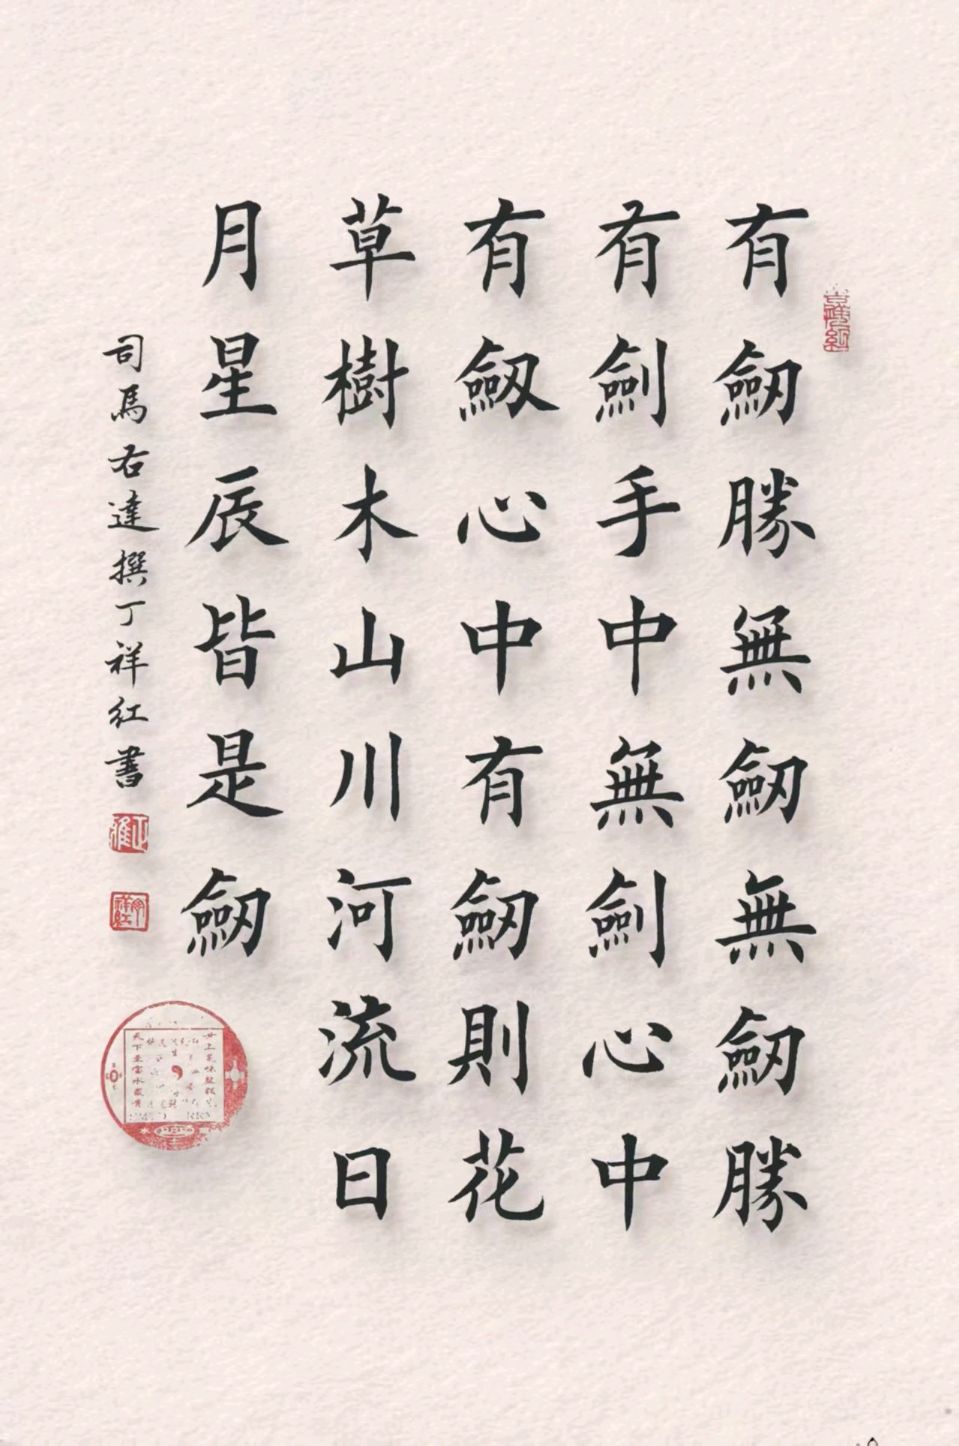 有劒勝無劒無劒勝
有劍手中無劍心中
有劔心中有劒則花
草樹木山川河流日
月星辰皆是劒
司馬右達撰丁祥紅書